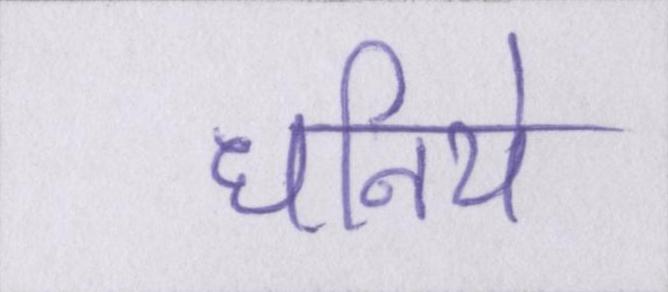 धनिये